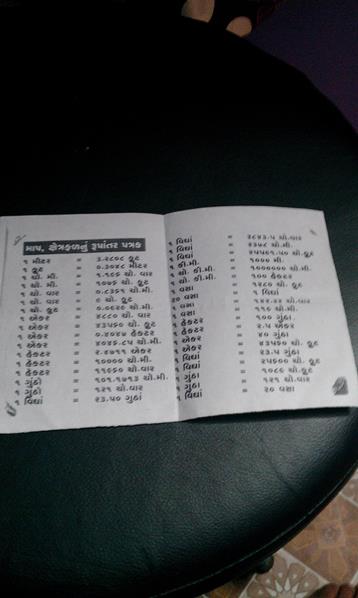 માપ, ક્ષેત્રફળનું રૂપાંતર પત્રક
૧ મીટર = ૩.૨૮૦૮ ફૂટ
૧ ફૂટ = ૦.૩૦૪૮ મીટર
૧ ચો. મી. = ૧.૧૯૬ ચો. વાર
૧ ચો. મી. = ૧૦.૭૬ ચો. ફૂટ
૧ ચો. વાર = ૦.૮૩૬૧ ચો.મી.
૧ ચો. વાર = ૯ ચો. ફૂટ
૧ ચો. ફૂટ = ૦.૦૯૨૯ ચો.મી.
૧ એકર = ૪૮૪૦ ચો. વાર
૧ એકર = ૪૩૫૬૦ ચો. ફૂટ
૧ એકર = ૦.૪૦૪૭ હેક્ટર
૧ એકર = ૪૦૪૬.૮૫ ચો.મી.
૧ હેક્ટર = ૨.૪૭૧૧ એકર
૧ હેક્ટર = ૧૦૦૦૦ ચો.મી.
૧ હેક્ટર = ૧૧૯૬૦ ચો.વાર
૧ ગુંઠા = ૧૦૧.૧૭૧૩ ચો.મી.
૧ ગુંઠો = ૧૨૧ ચો.વાર
૧ વિઘાં = ૨૩.૫૦ ગુંઠાં
૧ વિઘાં = ૨૮૪૩.૫ ચો.વાર
૧ વિઘાં = ૨૩૭૮ ચો.મી.
૧ વિઘાં = ૨૫૫૯૧.૫૦ ચો.ફૂટ
૧ કી.મી. = ૧૦૦૦ મી.
૧ ચો. કી.મી. = ૧૦૦૦૦૦૦ ચો.મી.
૧ ચો. કી.મી. = ૧૦૦ હેક્ટર
૧ વસા = ૧૨૮૦ ચો.ફૂટ
૨૦ વસા = ૧ વિઘાં
૧ વસા = ચો.વાર
૧ વસા = ૧૧૯ ચો.મી.
૧ હેક્ટર = ૧૦૦ ગુંઠા
૧ હેક્ટર = ૨.૫ એકર
૧ એકર = ૪૦ ગુંઠા
૧ એકર = ૪૩૫૬૦ ચો. ફૂટ
૧ વિઘાં = ૨૩.૫ ગુંઠા
૧ વિઘાં = ૨૫૬૦૦ ચો. ફૂટ
૧ ગુંઠા = ૧૦૮૯ ચો.ફૂટ
૧ ગુંઠા = ૧૨૧ ચો.વાર
૧ વિઘાં = ૨૦ વસા